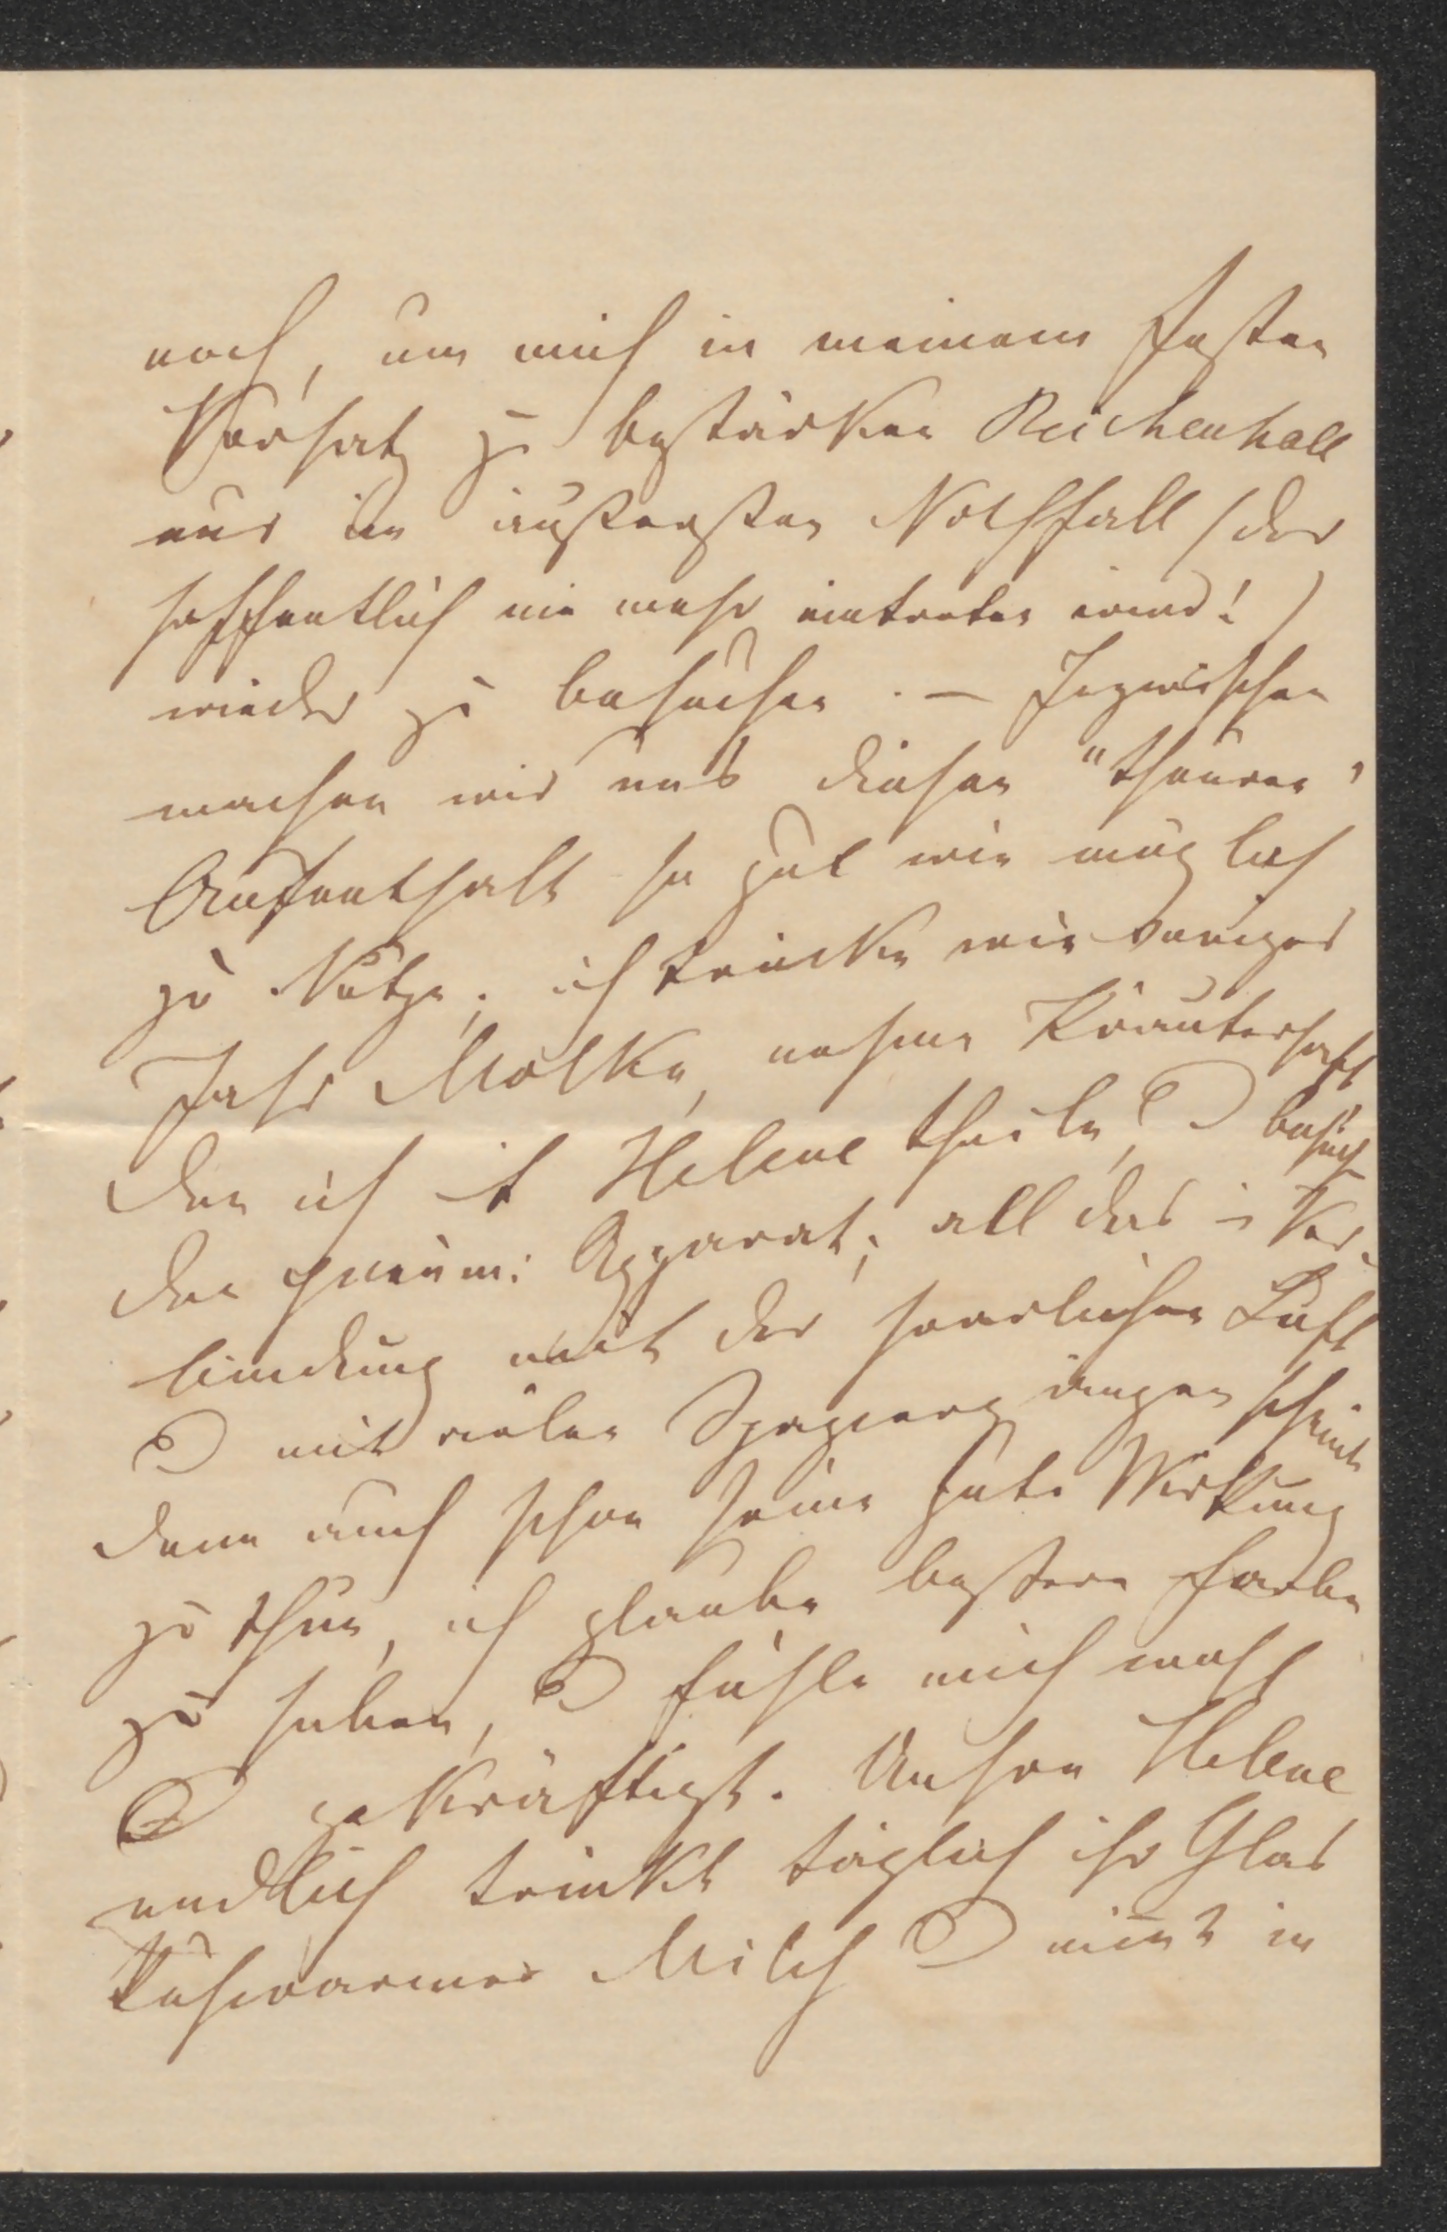 noch, um mich in meinem festen
Vorsatz zu bestärken Reichenhall
nur im äußersten Nothfall (der
hoffentlich nie mehr eintreten wird!)
wieder zu besuchen. – Inzwischen
machen wir uns diesen "theuren"
Aufenthalt so gut wie möglich
zu Nutze; ich trinke wie voriges
Jahr Molke, nehme Kräutersaft
den ich mit Helene theile, u besuche
den pneum: Apparat; all das in Ver-
bindung mit der herrlichen Luft
u mit vielen Spaziergängen scheint
denn auch schon seine gute Wirkung
zu thun, ich glaube bessere Farbe
zu haben, u fühle mich wohl
u gekräftigt. Unsere Helene
endlich trinkt täglich ihr Glas
kuhwarmer Milch u nim̄t in